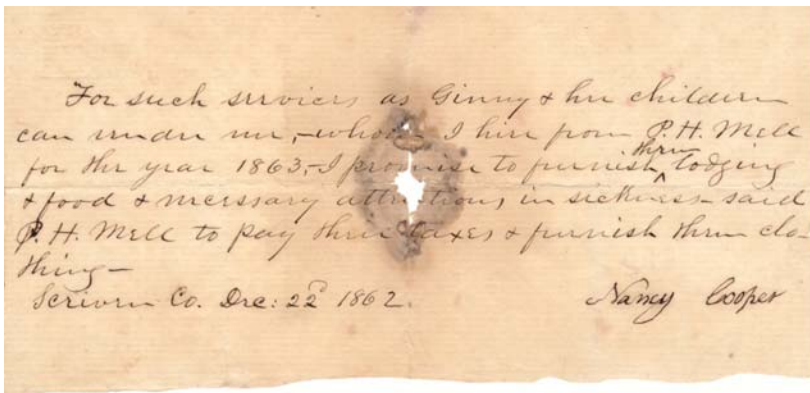 For such services as Ginny & her children
can render me,-whom I hire from P. H. Mell
for the year 1863,-I promise to furnish them lodging
& food & necessary attentions in sickness-said
P. H. Mell to pay their taxes & furnish them clo-
thing-
Scriven Co. Dec: 22d 1862.
Nancy Cooper